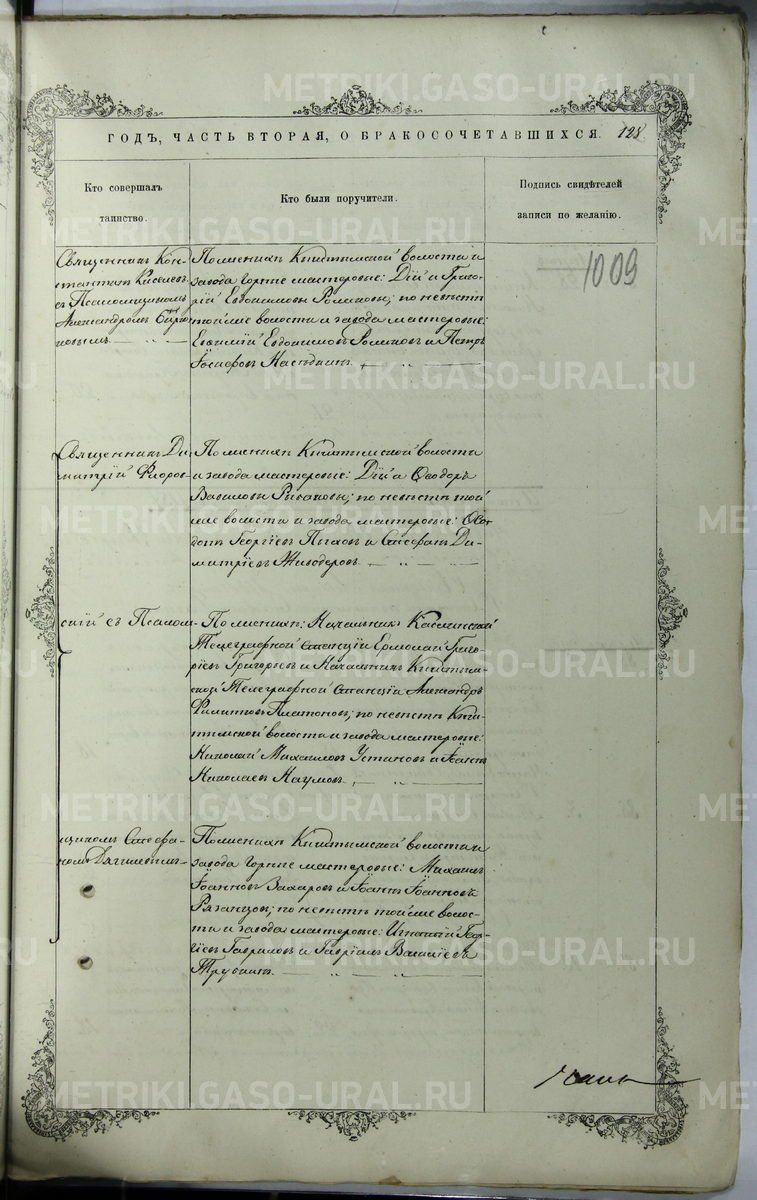 METRIKI.GASO-URAL.RU
ГОДЪ, ЧАСТЬ ВТОРАЯ, О БРАКОСОЧЕТАВШИХСЯ. 128
Кто совершалъ
таинство.
Кто были поручители.
Подпись свидѣтелей
записи по желанію.
1009
Священникъ Кон-
стантинъ Киселевъ
съ Псаломщикомъ
Александромъ
По женихѣ Кыштымской волости и
завода горные мастеровые: Дій и Григо-
рій Евдокимовы Романовы; по невѣстѣ
той же волости и завода мастеровые:
Евѳимій Евдокимовъ Романовъ и Петръ
Іосифовъ
Священникъ Ди-
митрій Флоров-
По женихѣ Кыштымской волости
и завода мастеровые: Дій и Ѳеодоръ
Вавиловы Рыбаковы; по невѣстѣ той
же волости и завода мастеровые:
Георгіевъ Пыховъ и Стефанъ Ди-
митріевъ Живодеровъ.
скій съ Псалом-
По женихѣ: Начальникъ Каслинской
Телеграфной Станціи Ермолай Григо-
рьевъ Григорьевъ и Начальникъ Кыштым-
ской Телеграфной Станціи Александръ
Филипповъ Платоновъ; по невѣстѣ Кыш-
тымской волости и завода мастеровые:
Николай Михайловъ Устиновъ и Іоаннъ
Николаевъ Наумовъ.
щикомъ Стефа-
номъ Дягилевымъ
По женихѣ Кыштымской волости и
завода горные мастеровые: Михаилъ
Іоанновъ Захаровъ и Іоаннъ Іоанновъ
Рязанцовъ; по невѣстѣ той же волос-
ти и завода мастеровые: Игнатій Геор-
гіевъ Гавриловъ и Гавріилъ Василіевъ
Трубинъ.